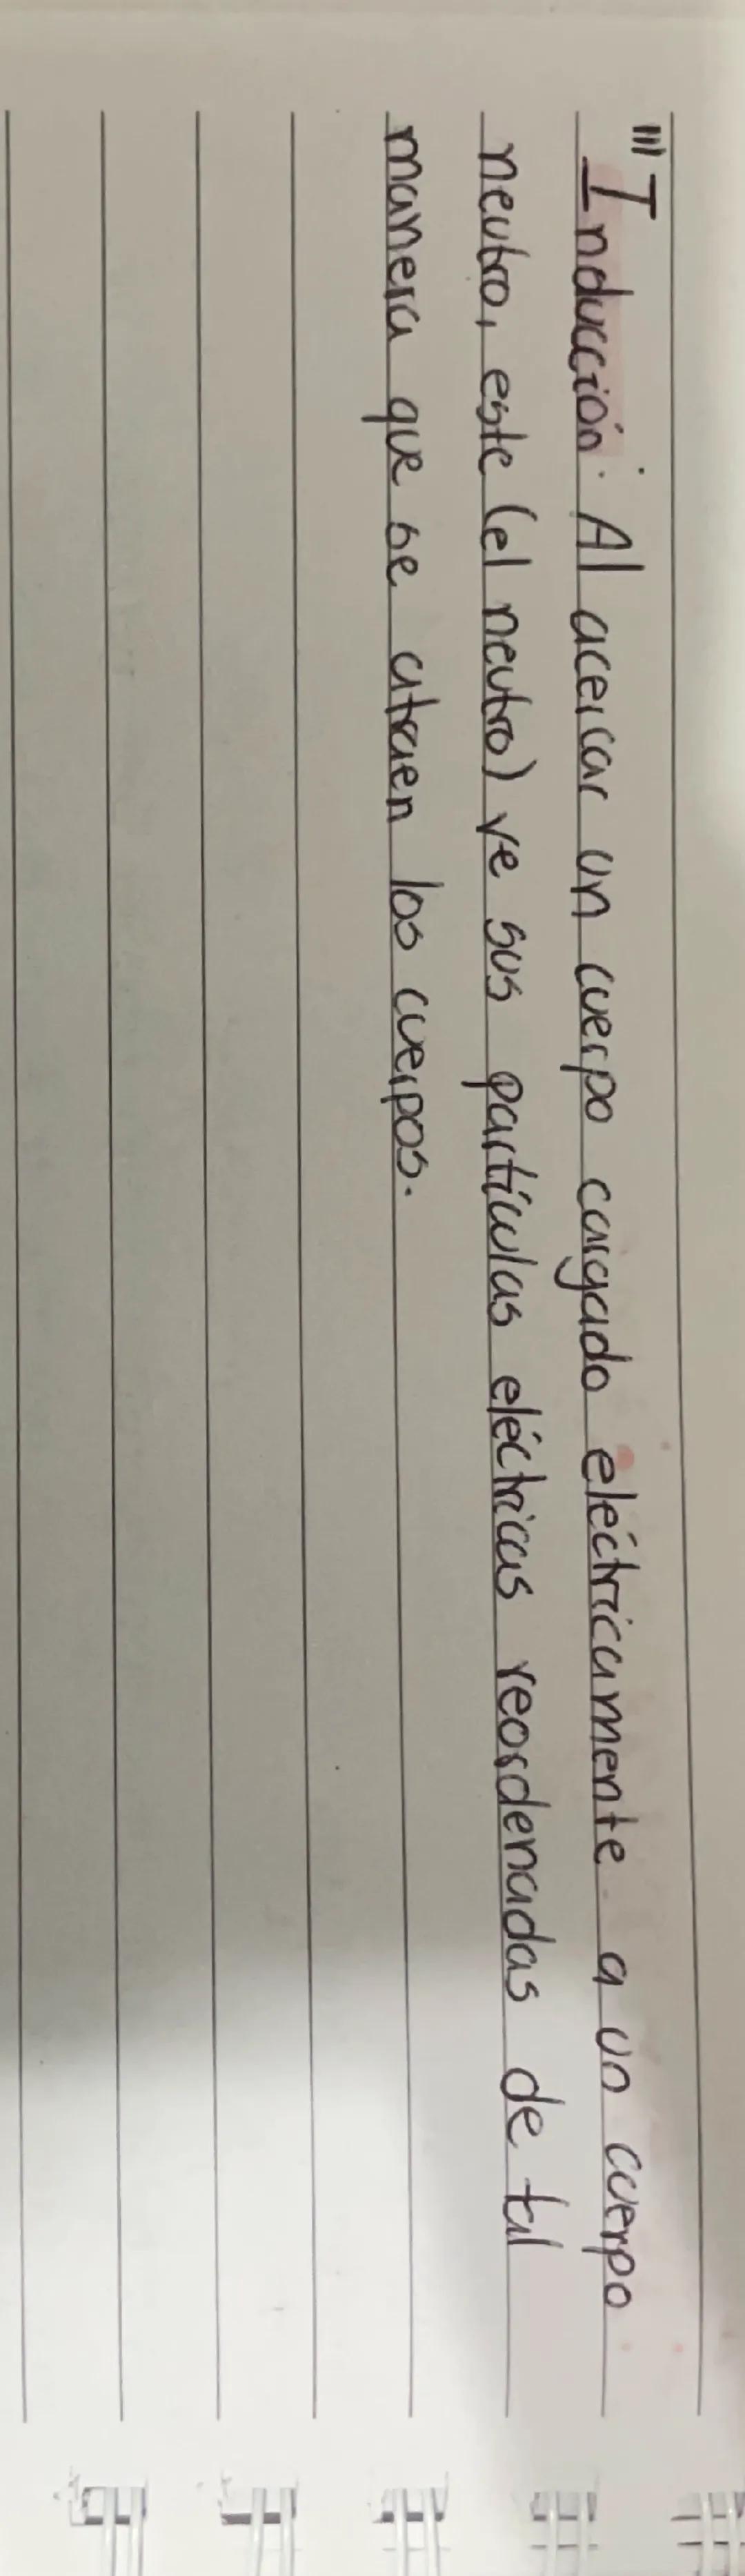 "' Inducción: Al acercar un cuerpo cargado eléctricamente a un cuerpo
neutro, este (el neutro) ve sus partículas eléctricas reordenadas de tal
manera que se atraen los cuerpos.